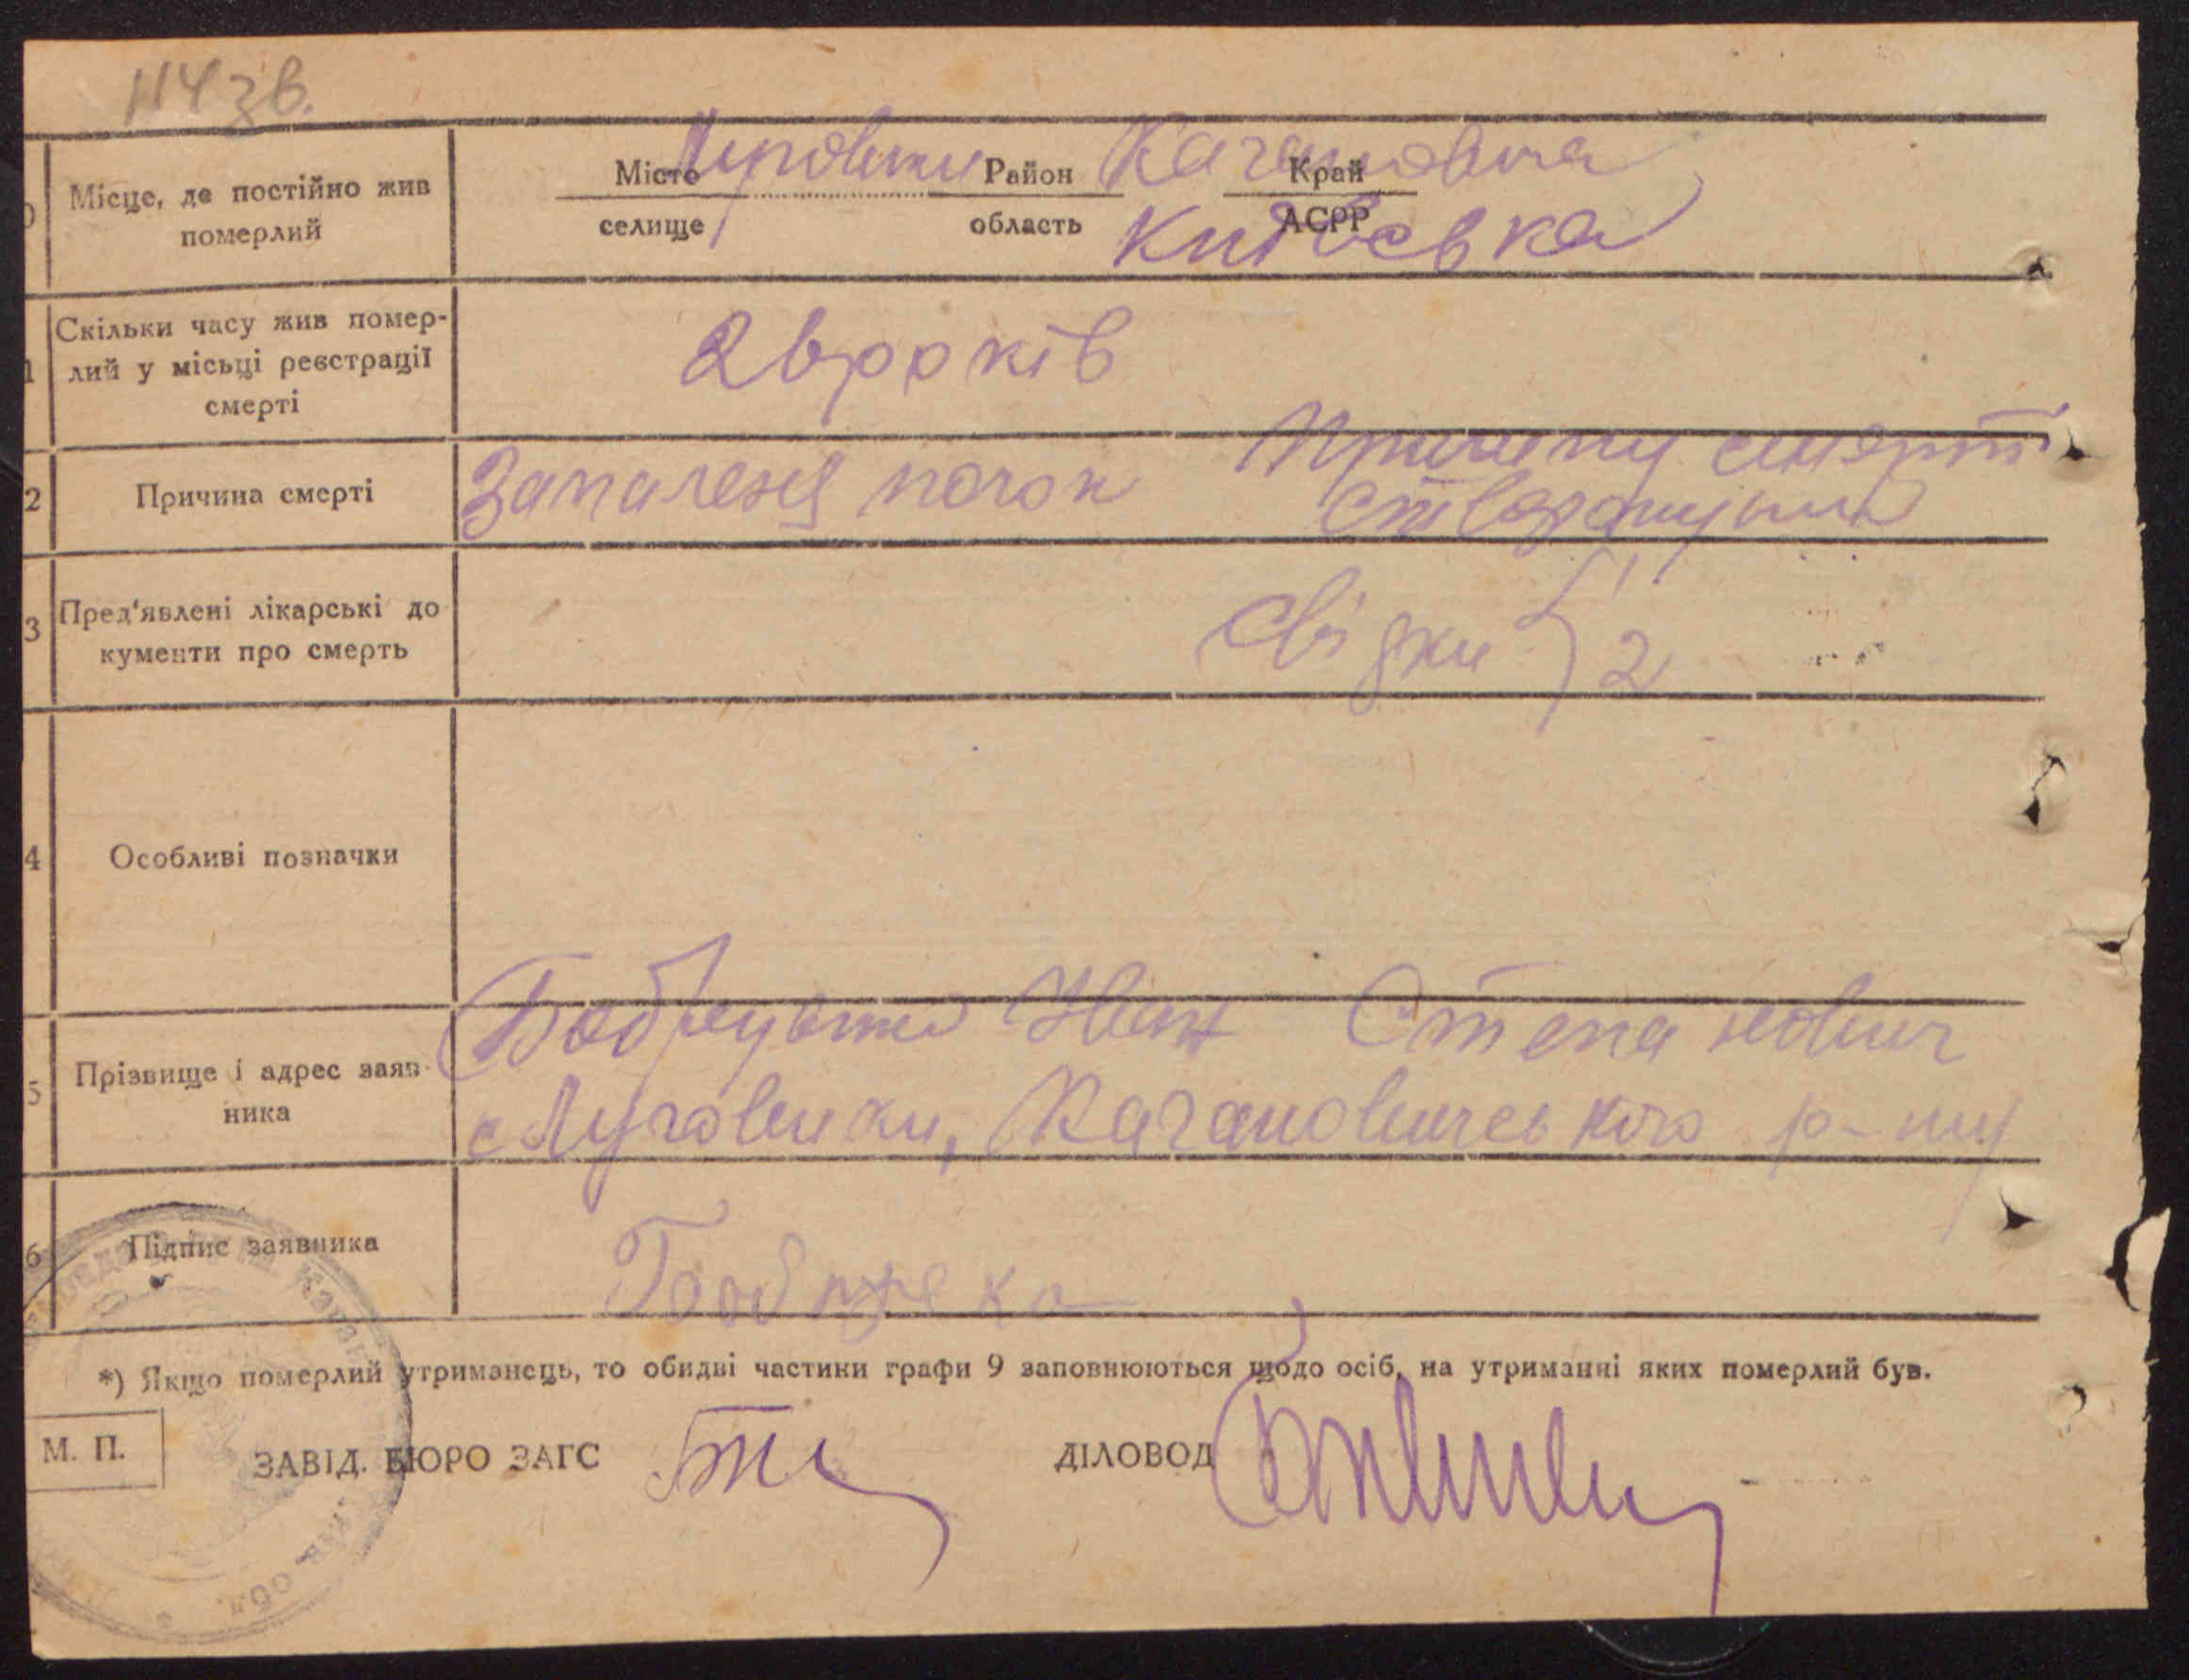 114 зв.
Місце, де постійно жив померлий
Місто Луговики Район Кагановича Край
селище область Київська АСРР
1 Скільки часу жив помер-
лий у місьці реєстрації
смерті
26 років
2 Причина смерті
Запалення почок Причину смерті
3 Пред'явлені лікарські до
кументи про смерть
свідки 1
2
4 Особливі позначки
5 Прізвище і адрес заяв-
ника
Іван Степанович
с Луговики, Кагановичського р-ну
6 Підпис заявника
*) Якщо померлий утриманець, то обидві частини графи 9 заповнюються щодо осіб, на утриманні яких померлий був.
М. П.
ЗАВІД. БЮРО ЗАГС
ДІЛОВОД